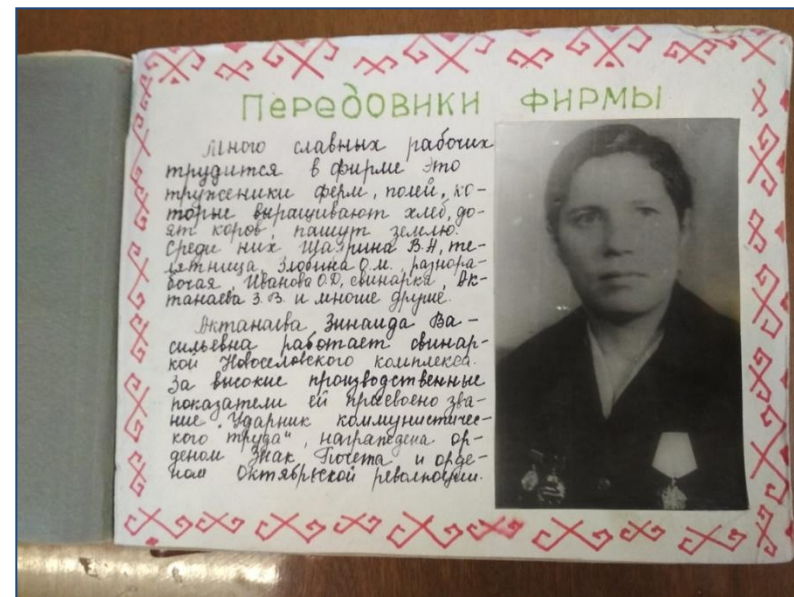 Передовики фирмы
Много славных рабочих
трудится в фирме это
труженики ферм, полей, ко-
торые выращивают хлеб, до-
ят коров, пашут землю.
Среди них Щагрина В.Н, те-
лятница, Злобина О.М. разнора-
бочая, Иванова О.Д, свинарка, Ок-
танаева З.В. и многие другие.
Октанаева Зинаида Ва-
сильевна работает свинар-
кой Новоселовского комплекса.
За высокие производственные
показатели ей присвоено зва-
ние "Ударник коммунистичес-
кого труда", награждена ор-
деном Знак Почета и орде-
ном Октябрьской революции.